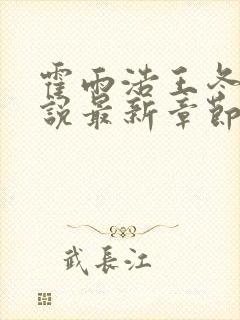 霍雨浩王冬
說最新章節
武長江